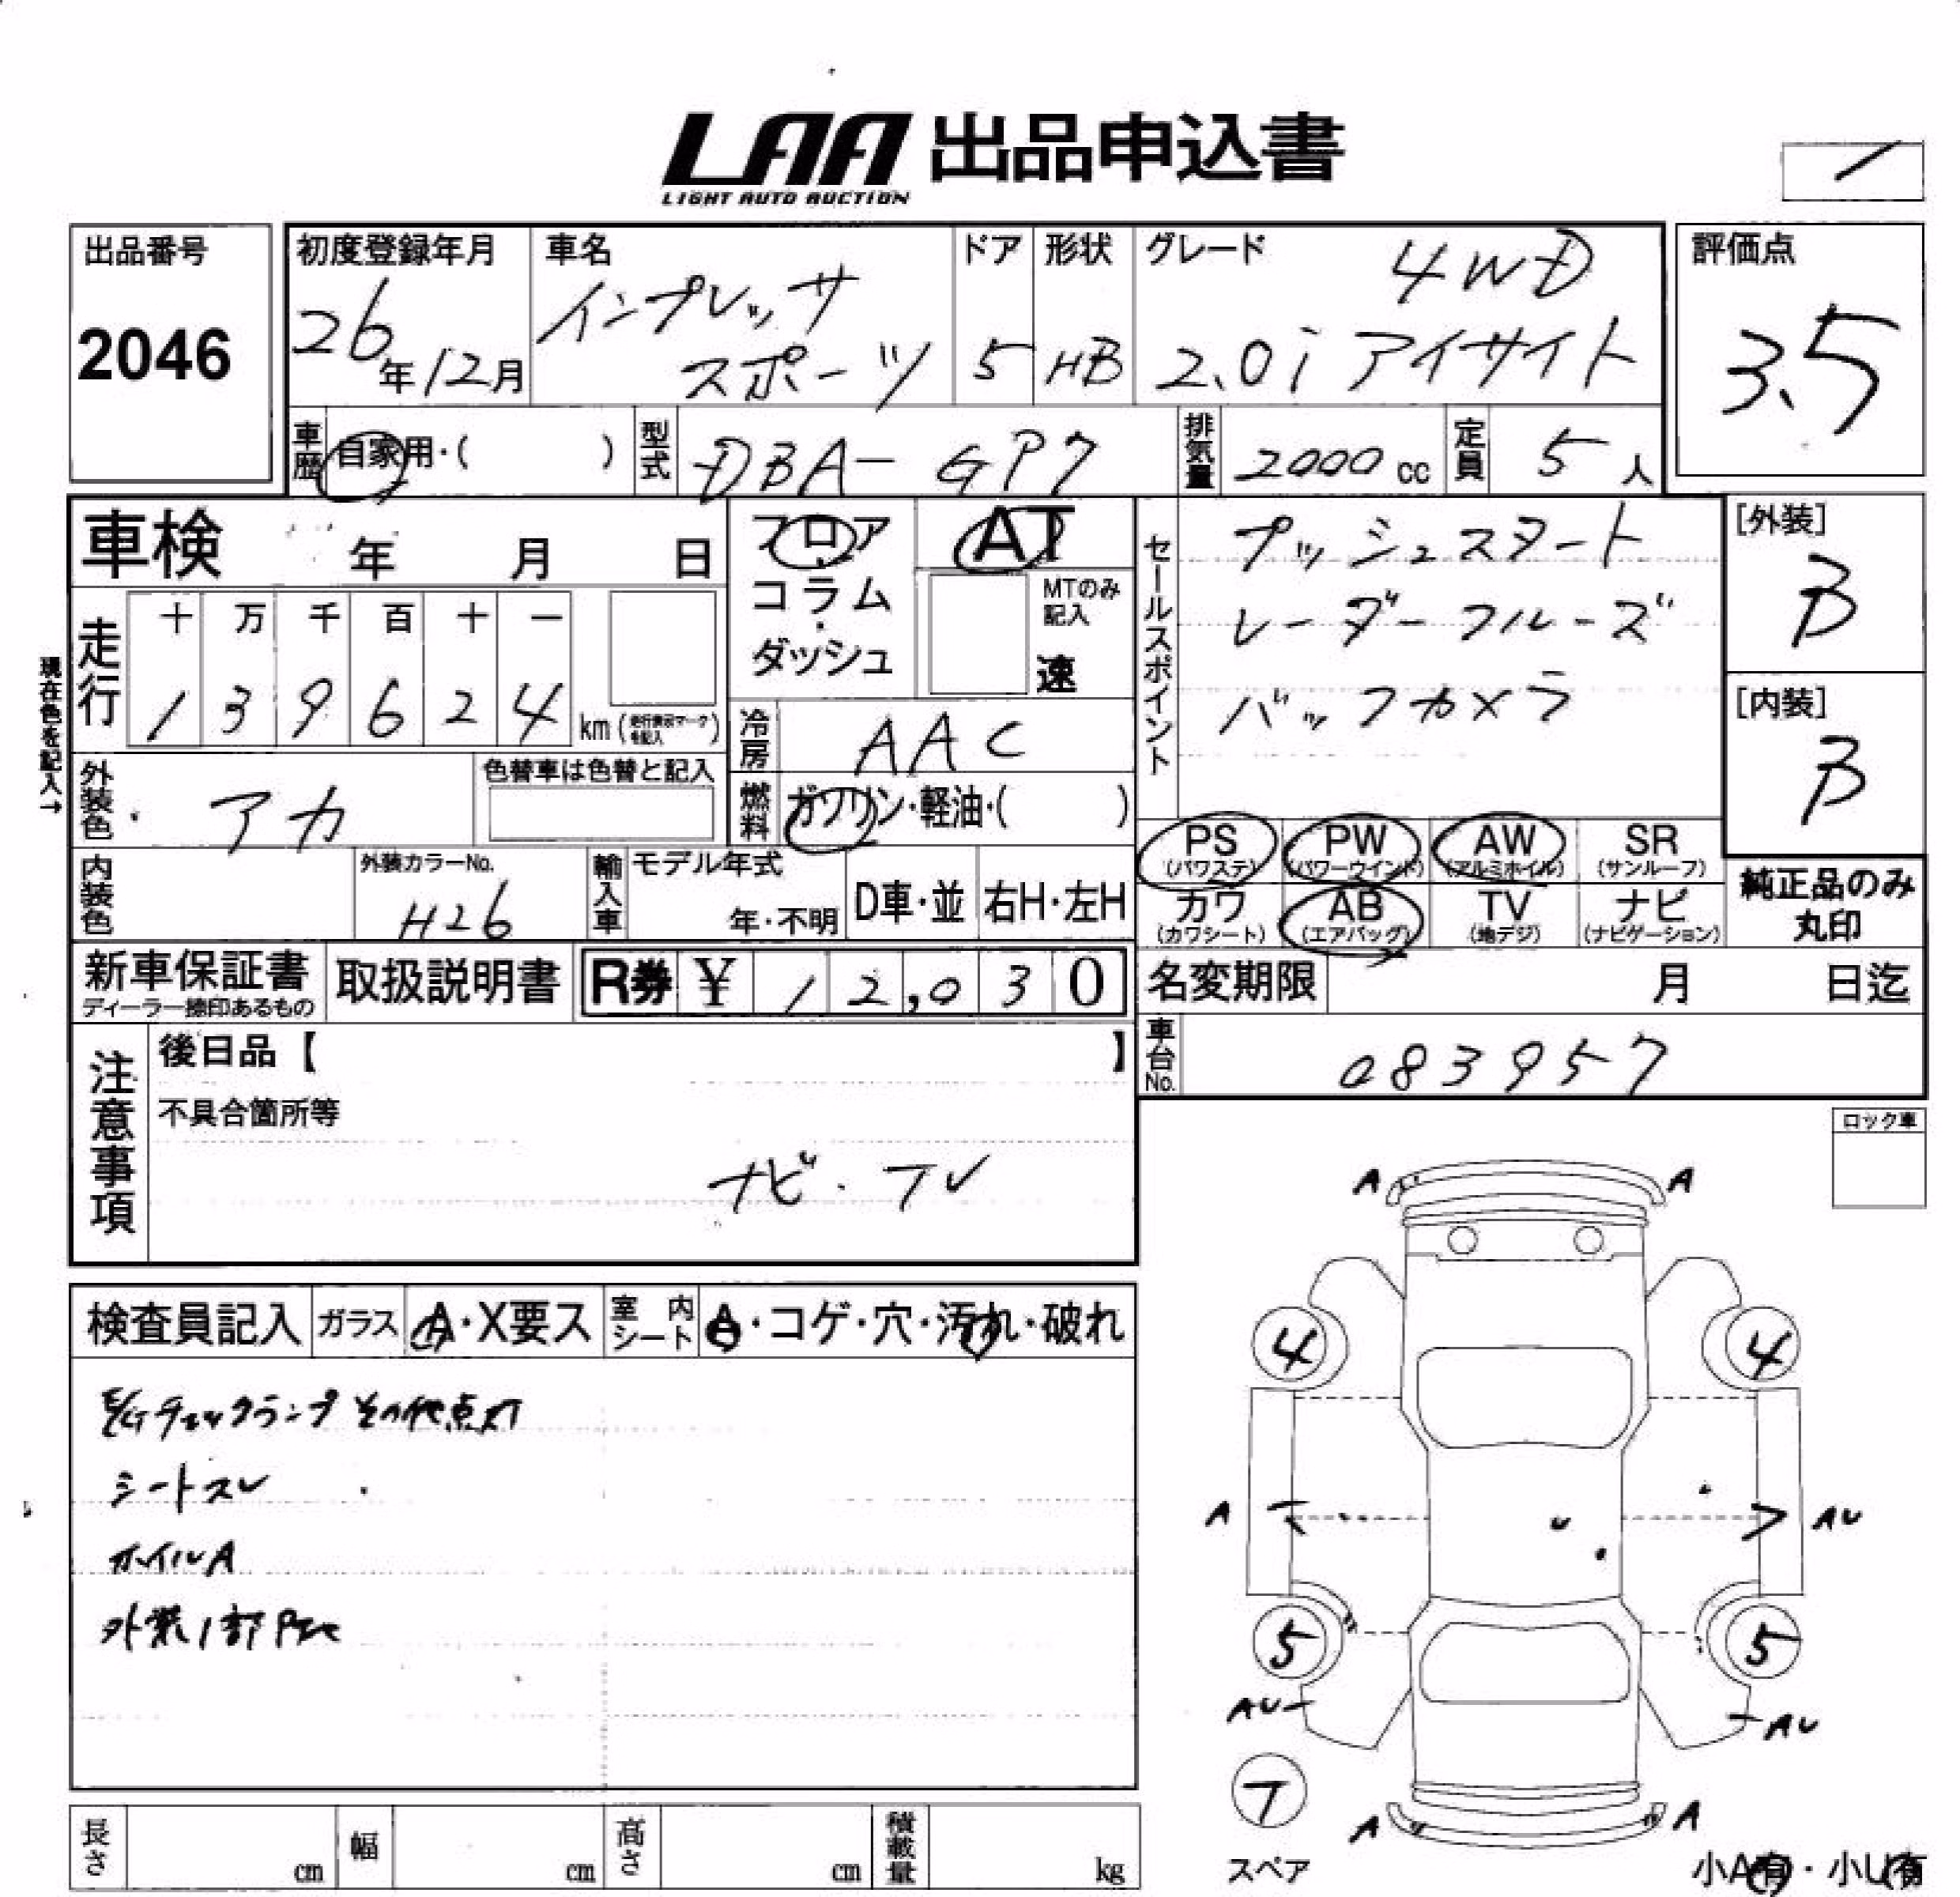 LAA 出品申込書
LIGHT AUTO AUCTION
出品番号
2046
初度登録年月
26年12月
車名
インプレッサ
スポーツ
ドア
5
形状
HB
グレード
4WD
2.0i アイサイト
評価点
3.5
車歴 自家用・( )
型式 DBA-GP7
排気量 2000cc
定員 5人
車検 年 月 日
フロア・コラム・ダッシュ
AT
MTのみ記入
速
セールスポイント
プッシュスタート
レーダークルーズ
バックカメラ
[外装]
B
[内装]
B
現在色を記入→
走行 十 万 千 百 十 一
1 3 9 6 2 4 km (走行表示マークを記入)
冷房 AAC
外装色 アカ
色替車は色替と記入
燃料 ガソリン・軽油・( )
PS (パワステ) PW (パワーウインド) AW (アルミホイル) SR (サンルーフ)
カワ (カワシート) AB (エアバッグ) TV (地デジ) ナビ (ナビゲーション)
純正品のみ丸印
内装色
外装カラーNo.
H26
輸入車 モデル年式 年・不明 D車・並 右H・左H
新車保証書
ディーラー捺印あるもの
取扱説明書
R券 ¥ 12,030
名変期限 月 日迄
車台No. 083957
注意事項
後日品【 】
不具合箇所等
ナビ・TV
ロック車
検査員記入 ガラス A・X要ス 室内シート A・コゲ・穴・汚れ・破れ
E/Gチェックランプその他点灯
シートスレ
ホイルA
外装1部P
A A
4 4
A AU
5 5
AU AU
T
スペア
A A
小A有・小U有
長さ cm 幅 cm 高さ cm 積載量 kg